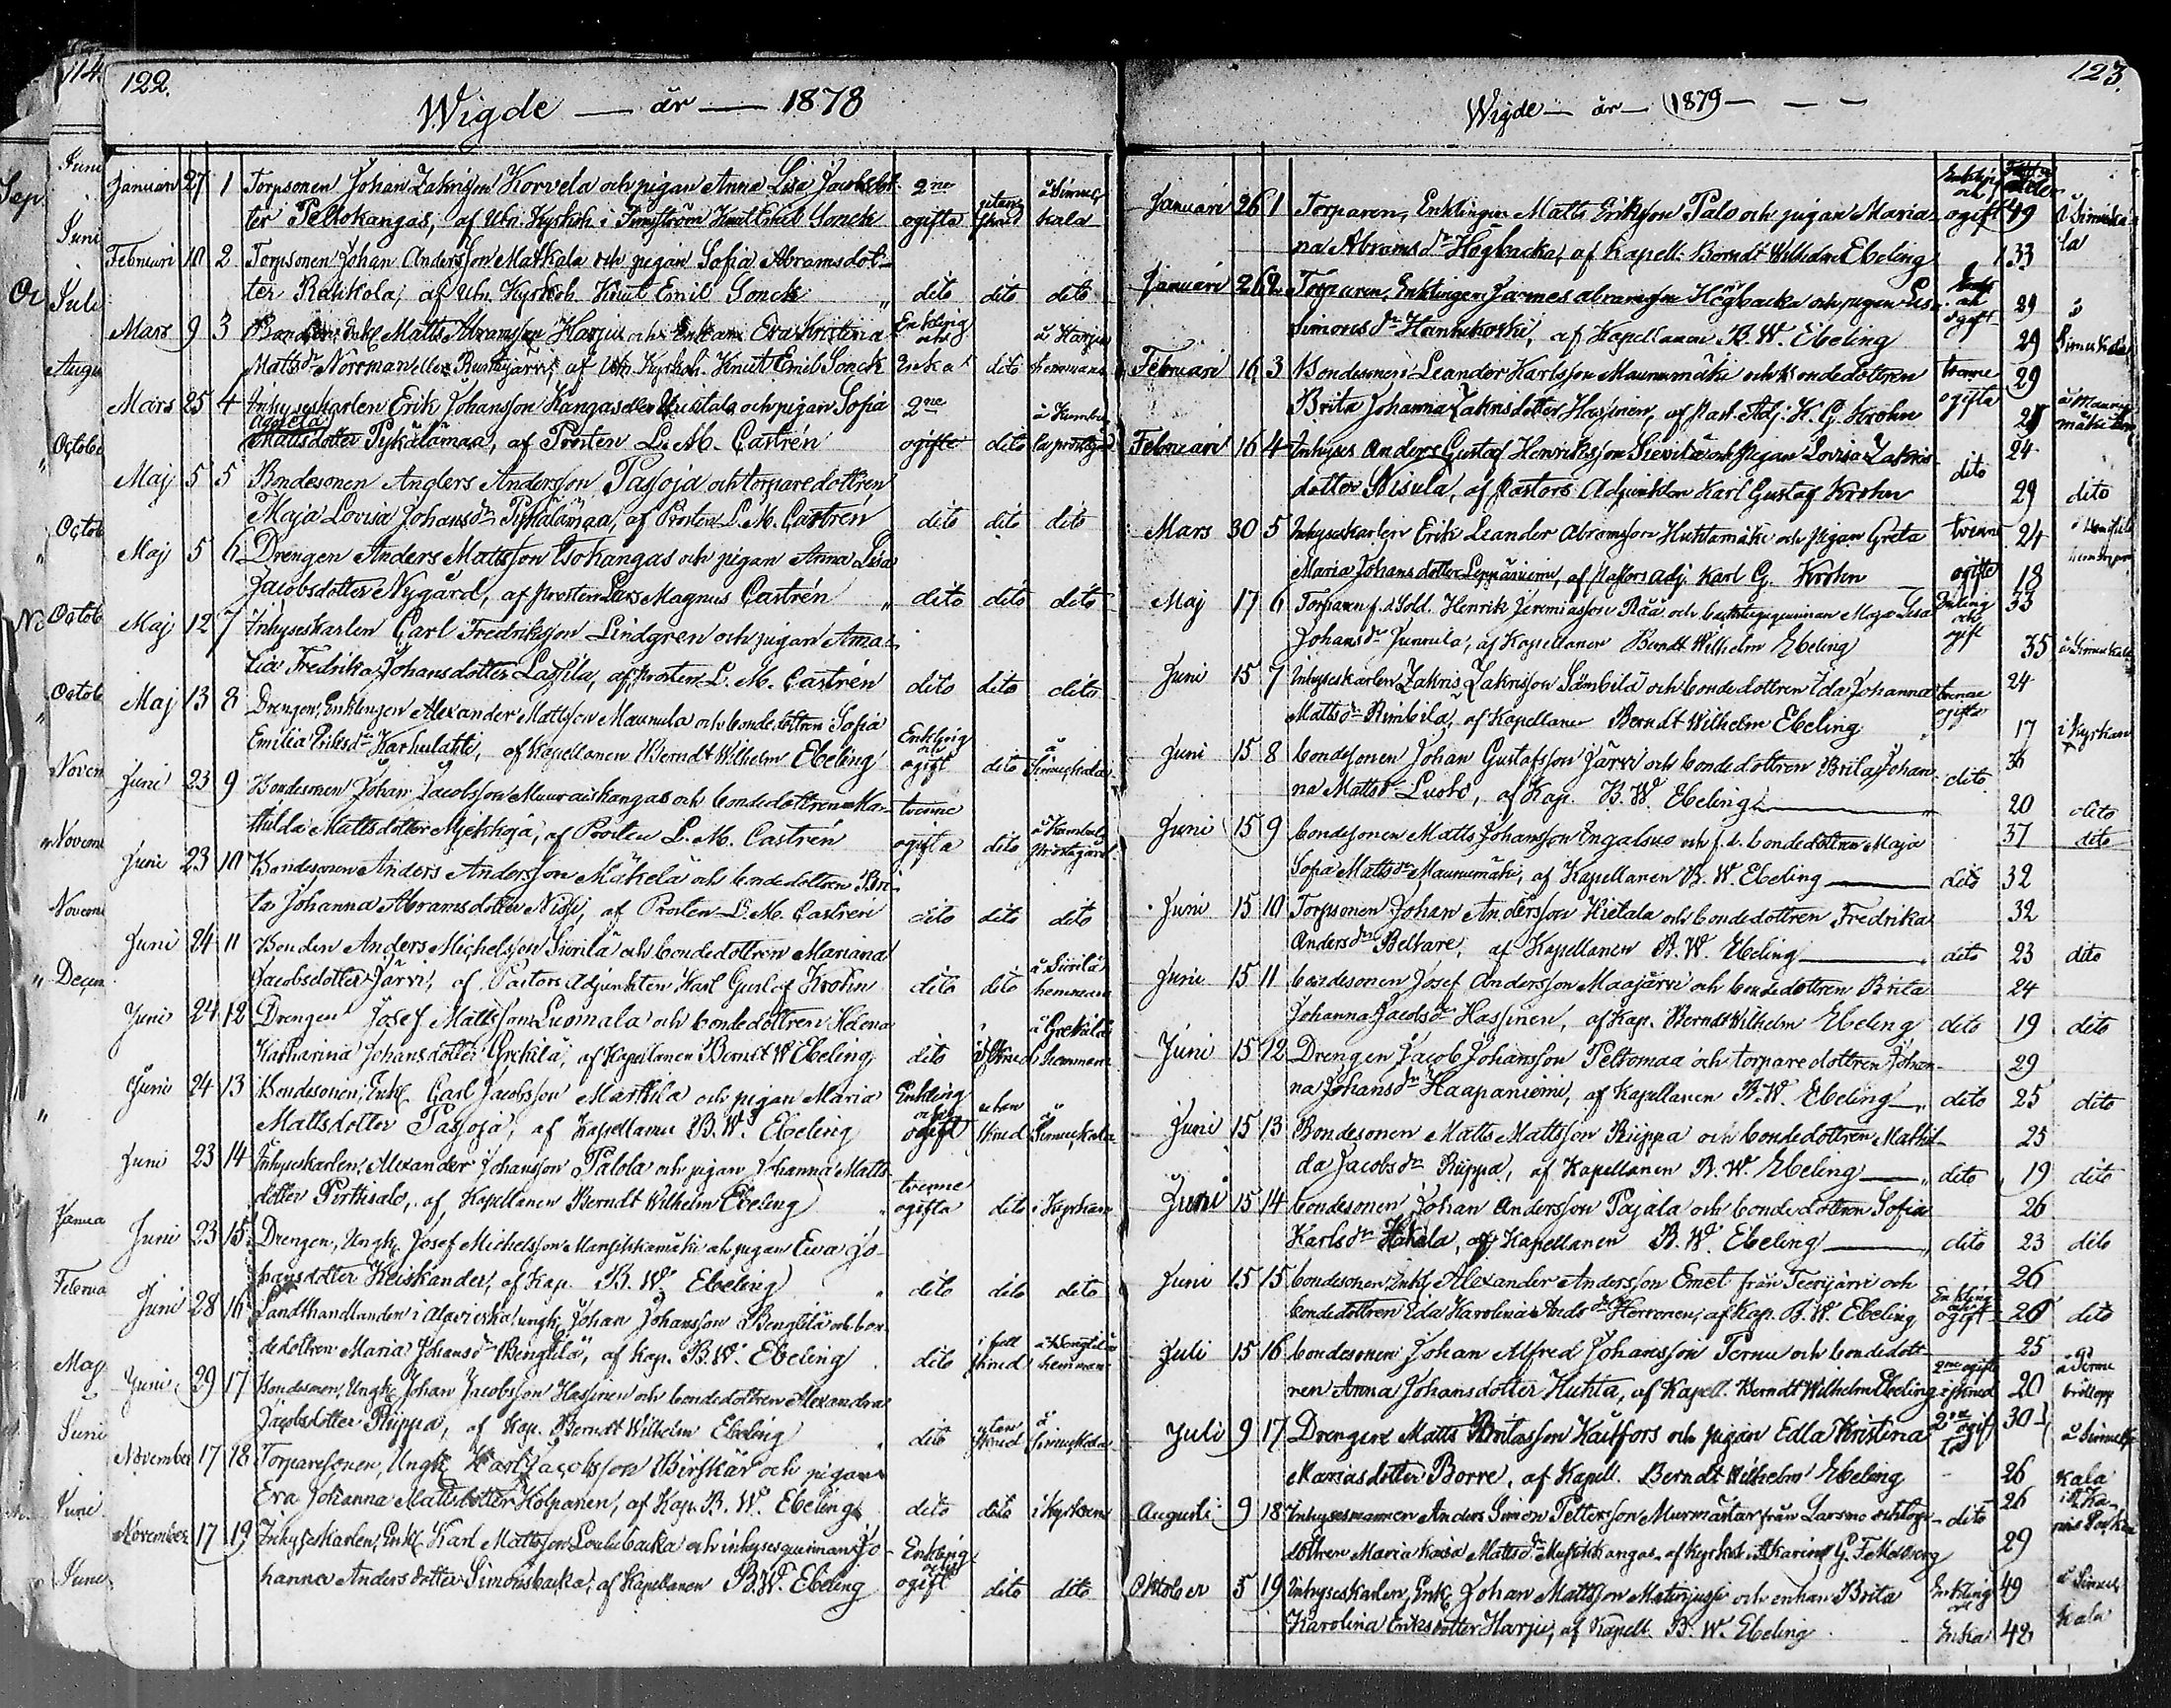 122.
Wigde — år — 1878
Januari 27 1 Torpsonen Johan Zakrisson Korvela och pigan Anna Lisa Jacobsdot- 2ne utan å Simus-
ter Peltokangas, af Utn. Kyrkoh. i Knut Emil Sonck ogifta kala
Februari 10 2 Torpsonen Johan Andersson Matkala och pigan Sofia Abramsdot-
ter Rahkola, af Utn. Kyrkoh. Knut Emil Sonck " dito dito dito
Mars 9 3 Bonden, Enkl. Matts Abramsson Harju och Enkan Eva Kristina Enkling och å Harju
Matts dr Norrman eller af Utn. Kyrkoh. Knut Emil Sonck Enka dito hemman
Mars 25 4 Inhyseskarlen Erik Johansson Kangas eller och pigan Sofia 2ne
Agneta
Mattsdotter Pyhälämaa, af Prosten L. M. Castrén ogifte dito
Maj 5 5 Bondesonen Anders Andersson Pasoja och torparedottren
Maja Lovisa Johans dr Pyhälämaa, af Prosten L. M. Castrén " dito dito dito
Maj 5 6 Drengen Anders Mattsson Isokangas och pigan Anna Lisa
Jacobsdotter Nygård, af prosten Lars Magnus Castrén " dito dito dito
Maj 12 7 Inhyseskarlen Carl Fredriksson Lindgren och pigan Ama-
lia Fredrika Johansdotter Lassila, af prosten L. M. Castrén dito dito dito
Maj 13 8 Drengen, Enklingen Alexander Mattsson Maunula och bondedottren Sofia Enkling
Emilia Eriks dr Karhulahti, af Kapellanen Berndt Wilhelm Ebeling och ogift dito å Simuskala
Juni 23 9 Bondesonen Johan Jacobsson Muuraiskangas och bondedottren Ma- tvenne
thilda Mattsdotter af Prosten L. M. Castrén ogifta dito å Prostgård
Juni 23 10 Bondesonen Anders Andersson Mäkelä och bondedottren Bri-
ta Johanna Abramsdotter Nissi, af Prosten L. M. Castrén dito dito dito
Juni 24 11 Bonden Anders Michelsson Siirilä och bondedottren Mariana
Jacobsdotter Järvi, af Pastors Adjunkten Karl Gustaf Krohn dito dito å Siirilä hemman
Juni 24 12 Drengen Josef Mattsson Luomala och bondedottren Helena
Katharina Johansdotter Grekilä, af Kapellanen Berndt W Ebeling dito å Grekilä hemman
Juni 24 13 Bondesonen, Enkl. Carl Jacobsson Marttila och pigan Maria Enkling utan å
Mattsdotter Pasoja, af Kapellanen B. W. Ebeling och ogift Simuskala
Juni 23 14 Inhyseskarlen, Alexander Johansson Palola och pigan Johanna Matts- tvenne
dotter Pirttisalo, af Kapellanen Berndt Wilhelm Ebeling " ogifta dito i Kyrkan
Juni 23 15 Drengen, Ungk. Josef Michelsson Mansikkamäki och pigan Ewa Jo-
hansdotter Keiskander, af Kap. B. W. Ebeling " dito dito dito
Juni 28 16 Landthandlanden i Alavieska, ungk. Johan Johansson Bengtilä och bon- i full å Bengtilä
dedottren Maria Johans dr Bengtilä, af Kap. B. W. Ebeling dito hemman
Juni 29 17 Bondesonen, Ungk. Johan Jacobsson Hassinen och bondedottren Alexandra utan å
Jacobsdotter Riippa, af Kap. Berndt Wilhelm Ebeling " dito Simuskala
November 17 18 Torparesonen, Ungk. Karl Jacobsson Birskär och pigan
Eva Johanna Mattsdotter Holpanen, af Kap. B. W. Ebeling dito dito i Kyrkan
November 17 19 Inhyseskarlen, Enkl. Karl Mattsson Loulubacka och inhysesqvinnan Jo- Enkling
hanna Andersdotter Simonsbacka, af Kapellanen B. W. Ebeling och ogift dito dito
123.
Wigde — år — 1879 — — —
Januari 26 1 Torparen, Enklingen Matts Eriksson Palo och pigan Maria- Enkling och ogift 49 å Simuska-
na Abrams dr Högbacka, af Kapell. Berndt Wilhelm Ebeling 33 la
Januari 26 2 Torparen, Enklingen James Abramsson Högbacka och pigan Lisa Enkl. och ogift 29 å
Simons dr Hannukoski, af Kapellanen B. W. Ebeling 29 Simuskala
Februari 16 3 Bondesonen Leander Karlsson Maunumäki och bondedottren tvenne 29
Brita Johanna Zakrisdotter Hassinen, af Past. Adj. K. G. Krohn ogifta å Maunu-
mäki
Februari 16 4 Inhyses Anders Gustaf Henriksson Sievilä och pigan Lovisa Zakris- 24
dotter Nisula, af Pastors Adjunkten Karl Gustaf Krohn dito 29 dito
Mars 30 5 Inhyseskarlen Erik Leander Abramsson Huhtamäki och pigan Greta tvenne 24
Maria Johansdotter Leppäniemi, af Pastors adj. Karl G. Krohn ogifte 18
Maj 17 6 Torparen f.d. Sold. Henrik Jeremiasson Rää och Maja Lisa Enkling 33
Johans dr Junnula, af Kapellanen Berndt Wilhelm Ebeling och ogift 35 å Simuskala
Juni 15 7 Inhyseskarlen Zakris Zakrisson Sämbilä och bondedottren Ida Johanna tvenne 24
Matts dr Rimbilä, af Kapellanen Berndt Wilhelm Ebeling " ogifta 17 i Kyrkan
Juni 15 8 bondesonen Johan Gustafsson Järvi och bondedottren Brita Johan-
na Matts dr Luoto, af Kap. B. W. Ebeling — dito 20 dito
Juni 15 9 bondesonen Matts Johansson Engalsuo och f. d. bondedottren Maja 37 dito
Sofia Matts dr Maunumäki, af Kapellanen B. W. Ebeling — dito 32
Juni 15 10 Torpsonen Johan Andersson Hietala och bondedottren Fredrika 32
Anders dr Belkare, af Kapellanen B. W. Ebeling — dito 23 dito
Juni 15 11 bondesonen Josef Andersson Maajärvi och bondedottren Brita 24
Johanna Jacobs dr Hassinen, af Kap. Berndt Wilhelm Ebeling dito 19 dito
Juni 15 12 Drengen Jacob Johansson Peltomaa och torparedottren Johan- 29
na Johans dr Haapaniemi, af Kapellanen B. W. Ebeling — " dito 25 dito
Juni 15 13 Bondesonen Matts Mattsson Riippa och bondedottren Mathil- 25
da Jacobs dr Riippa, af Kapellanen B. W. Ebeling — " dito 19 dito
Juni 15 14 bondesonen Johan Andersson Pajala och bondedottren Sofia 26
Karls dr Hakala, af Kapellanen B. W. Ebeling — " dito 23 dito
Juni 15 15 bondesonen, Enkl. Alexander Andersson Emet från Teerijärvi och Enkling 26
bondedottren Ida Karolina Ands dr Herronen, af Kap. B. W. Ebeling och ogift 20 dito
Juli 15 16 bondesonen Johan Alfred Johansson Pernu och bondedott- 25
ren Anna Johansdotter Huhta, af Kapell. Berndt Wilhelm Ebeling 2ne ogifte 20 bröllopp
Juli 9 17 Drengen Matts Britasson Kallfors och pigan Edla Kristina 2ne ogif- 30 å Simus-
Mariasdotter Borre, af Kapell. Berndt Wilhelm Ebeling ta 26 kala
Augusti 9 18 Inhysesmannen Anders Simon Pettersson Murmästar från Larsmo och torp- dito 26
dottren Maria Kaisa Matts dr af Kyrkoh. G. F. 29
Oktober 5 19 Inhyseskarlen, Enkl. Johan Mattsson och enkan Brita Enkling 49 å Simus-
Karolina Eriksdotter Harju, af Kapell. B. W. Ebeling och Enka 42 kala
114.
Juni
Sep.
Juni
Oc
Juli
Augu
Octobe
Octob
No
Octob
Octob
Novem
Novem
Novem
Decem
Janua
Februa
Maj
Juni
Juni
Juni